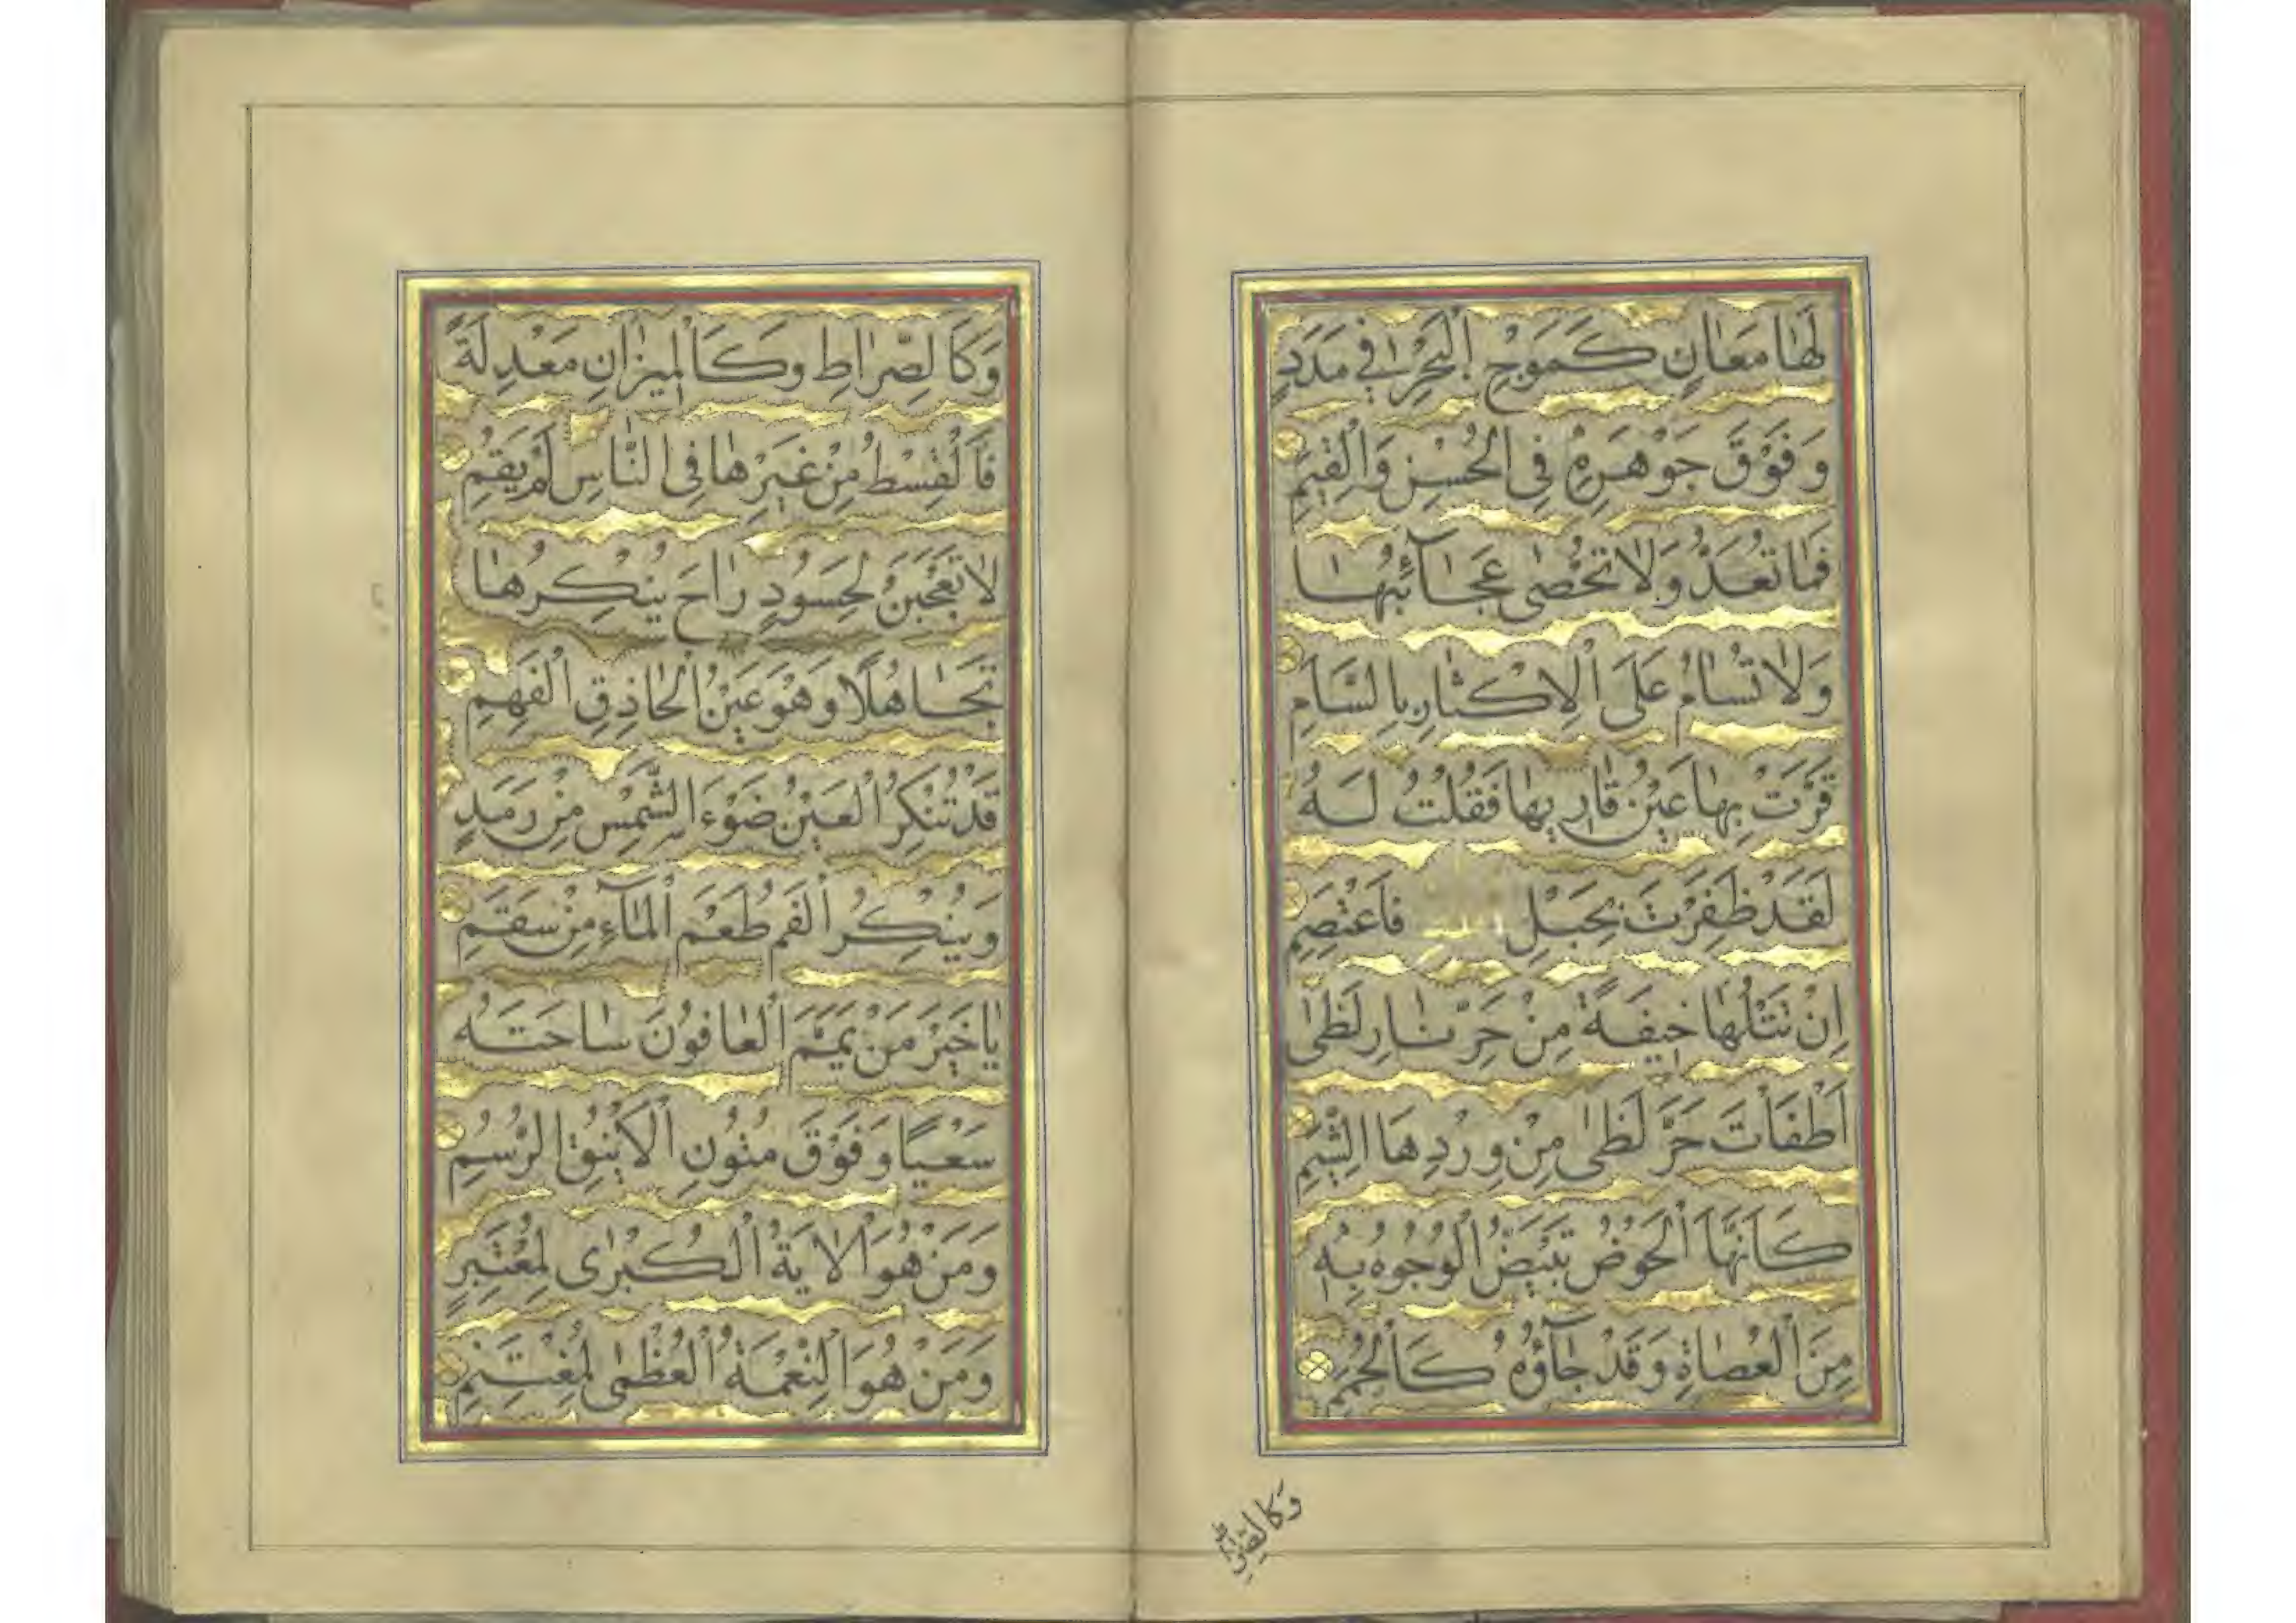 لَهٰا مَعٰانٍ كَمَوْجِ الْبَحْرِ فِي مَدَدٍ
وَفَوْقَ جَوْهَرِهِ فِي الْحُسْنِ وَالْقِيَمِ
فَمٰا تُعَدُّ وَلٰا تُحْصٰى عَجٰآئِبُهٰا
وَلٰا تُسٰامُ عَلَى الْاِكْثٰارِ بِالسَّاَمِ
قَرَّتْ بِهٰا عَيْنُ قٰارِيهٰا فَقُلْتُ لَهُ
لَقَدْ ظَفِرْتَ بِحَبْلِ فَاعْتَصِمِ
اِنْ تَتْلُهٰا خِيفَةً مِنْ حَرِّ نٰارِ لَظٰى
اَطْفَأْتَ حَرَّ لَظٰى مِنْ وِرْدِهَا الشَّبِمِ
كَاَنَّهَا الْحَوْضُ تَبْيَضُّ الْوُجُوهُ بِهِ
مِنَ الْعُصٰاةِ وَقَدْ جٰآؤُهُ كَالْحُمَمِ
وَكَالصِّرٰاطِ
وَكَالصِّرٰاطِ وَكَالْمِيزٰانِ مَعْدِلَةً
فَالْقِسْطُ مِنْ غَيْرِهٰا فِى النّٰاسِ لَمْ يَقُمِ
لٰا تَعْجَبَنْ لِحَسُودٍ رٰاحَ يُنْكِرُهٰا
تَجٰاهُلًا وَهْوَ عَيْنُ الْحٰاذِقِ الْفَهِمِ
قَدْ تُنْكِرُ الْعَيْنُ ضَوْءَ الشَّمْسِ مِنْ رَمَدٍ
وَيُنْكِرُ الْفَمُ طَعْمَ الْمٰآءِ مِنْ سَقَمِ
يٰا خَيْرَ مَنْ يَمَّمَ الْعٰافُونَ سٰاحَتَهُ
سَعْيًا وَفَوْقَ مُتُونِ الْاَيْنُقِ الرُّسُمِ
وَمَنْ هُوَ الْاٰيَةُ الْكُبْرٰى لِمُعْتَبِرٍ
وَمَنْ هُوَ النِّعْمَةُ الْعُظْمٰى لِمُغْتَنِمِ